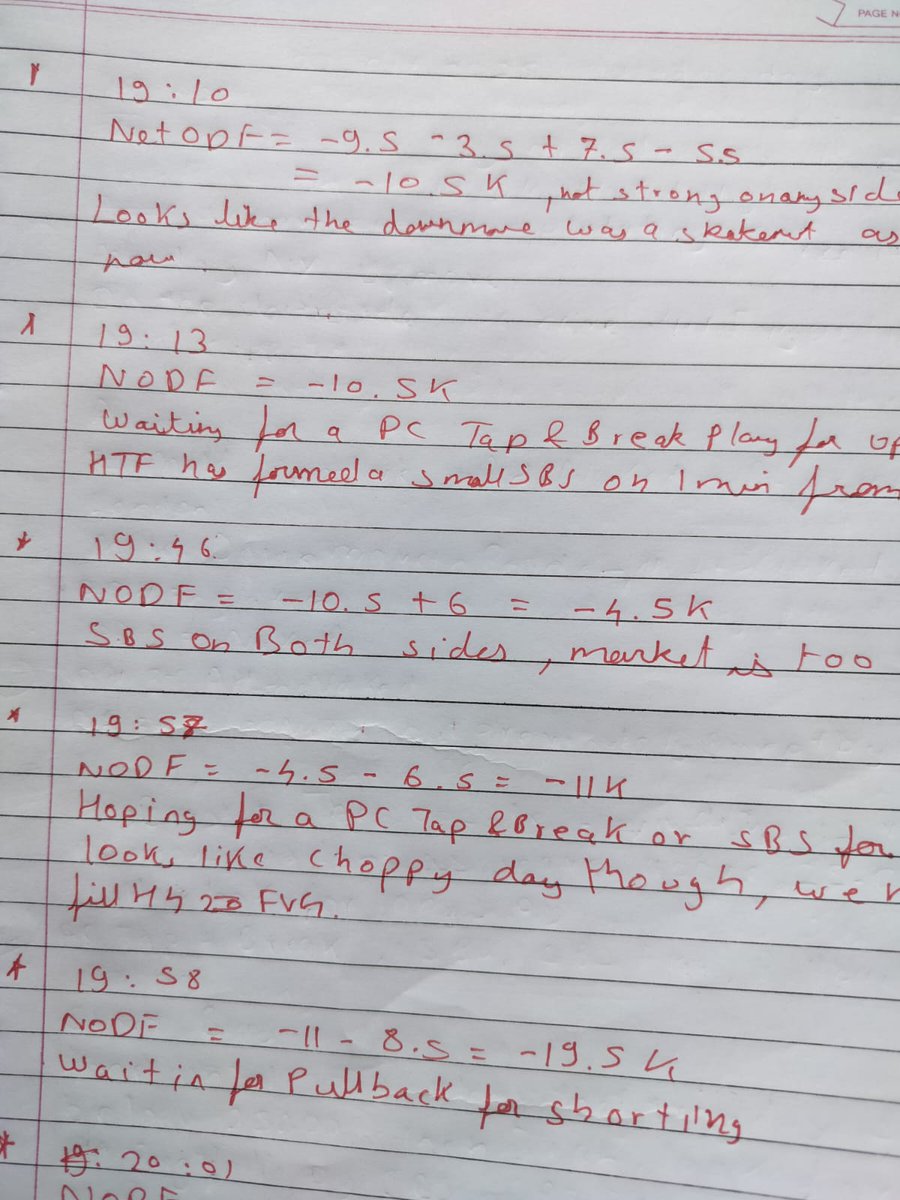 PAGE N
19:10
Net ODF = -9.5 -3.5 + 7.5 - 5.5
= -10.5 K, not strong on any side
Looks like the downmove was a shakeout as
now.
19:13
NODF = -10.5K
Waiting for a PC Tap & Break Play for up
HTF has formed a small SBS on 1 min from
19:46
NODF = -10.5 + 6 = -4.5K
SBS on Both sides, market is too
19:57
NODF = -4.5 - 6.5 = -11K
Hoping for a PC Tap & Break or SBS for
looks like choppy day though, we
fill H4 FVG.
19:58
NODF = -11 - 8.5 = -19.5 K
Waitin for Pullback for shorting
20:01
NODF